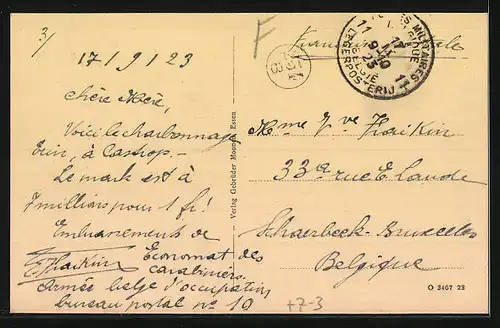 3/
17/9/23
chère Mère,
Voici le charbonnage
Erin, à Castrop. —
Le mark est à
7 millions pour 1 fr!
Embrassements de
E. Haikin
Economat des
carabiniers
Armée belge d'occupation
bureau postal no 10
Verlag Gebrüder Moonen, Essen
F
POSTES MILITAIRES
BELGIQUE
11 17 11
IX
9-10
23
BELGIË
LEGERPOSTERIJ
Mme Vve Haikin
33a rue E. Laude
Schaerbeek-Bruxelles
Belgique
O 3467 23
+7-3